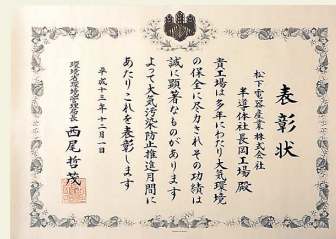 表彰状
松下電器産業株式会社
半導体社長岡工場 殿
貴工場は多年にわたり大気環境
の保全に尽力されその功績は
誠に顕著なものがあります
よって大気汚染防止推進月間に
あたりこれを表彰します
平成十三年十二月一日
環境省環境管理局長 西尾哲茂